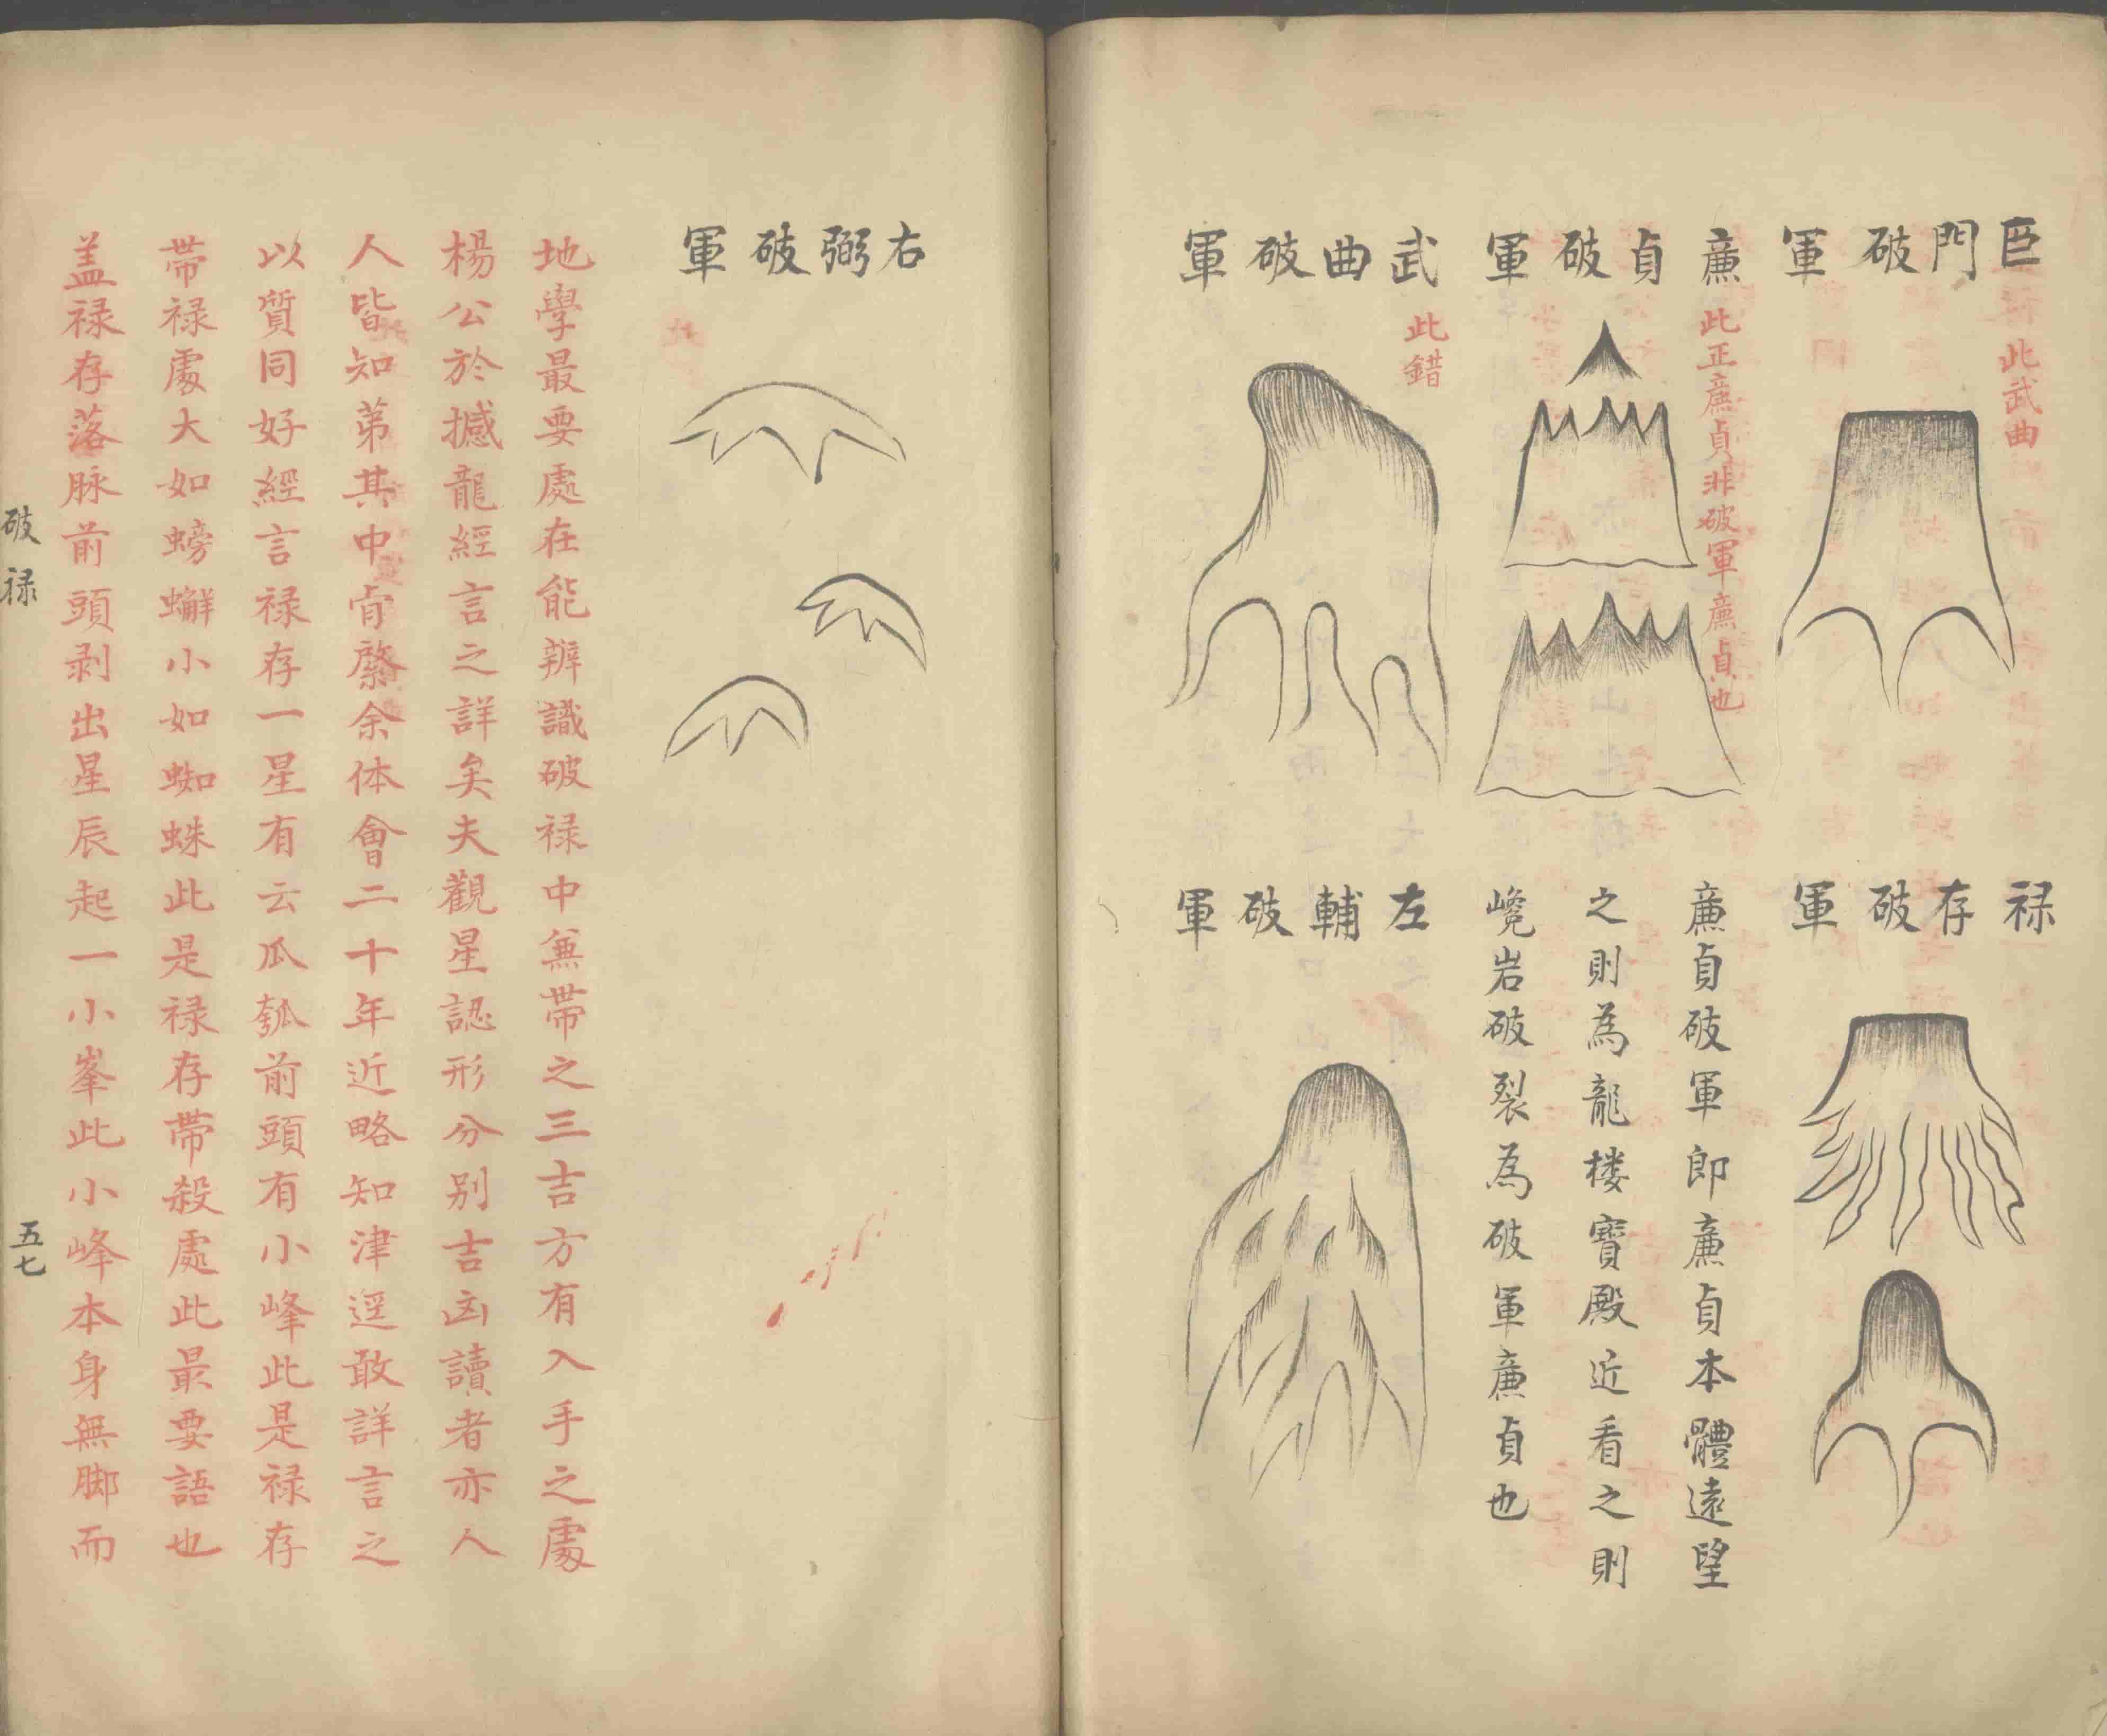 巨門破軍
此武曲
禄存破軍
廉貞破軍
此正廉貞非破軍廉貞也
廉貞破軍即廉貞本體遠望
之則為龍楼寶殿近看之則
巉岩破裂為破軍廉貞也
武曲破軍
此錯
左輔破軍
右弼破軍
地學最要處在能辨識破禄中兼帶之三吉方有入手之處
楊公於撼龍經言之詳矣夫觀星認形分别吉凶讀者亦人
人皆知第其中肯綮余体會二十年近略知津逕敢詳言之
以質同好經言禄存一星有云瓜瓠前頭有小峰此是禄存
帶禄處大如螃蠏小如蜘蛛此是禄存帶殺處此最要語也
盖禄存落脉前頭剥出星辰起一小峯此小峰本身無脚而
破禄
五七